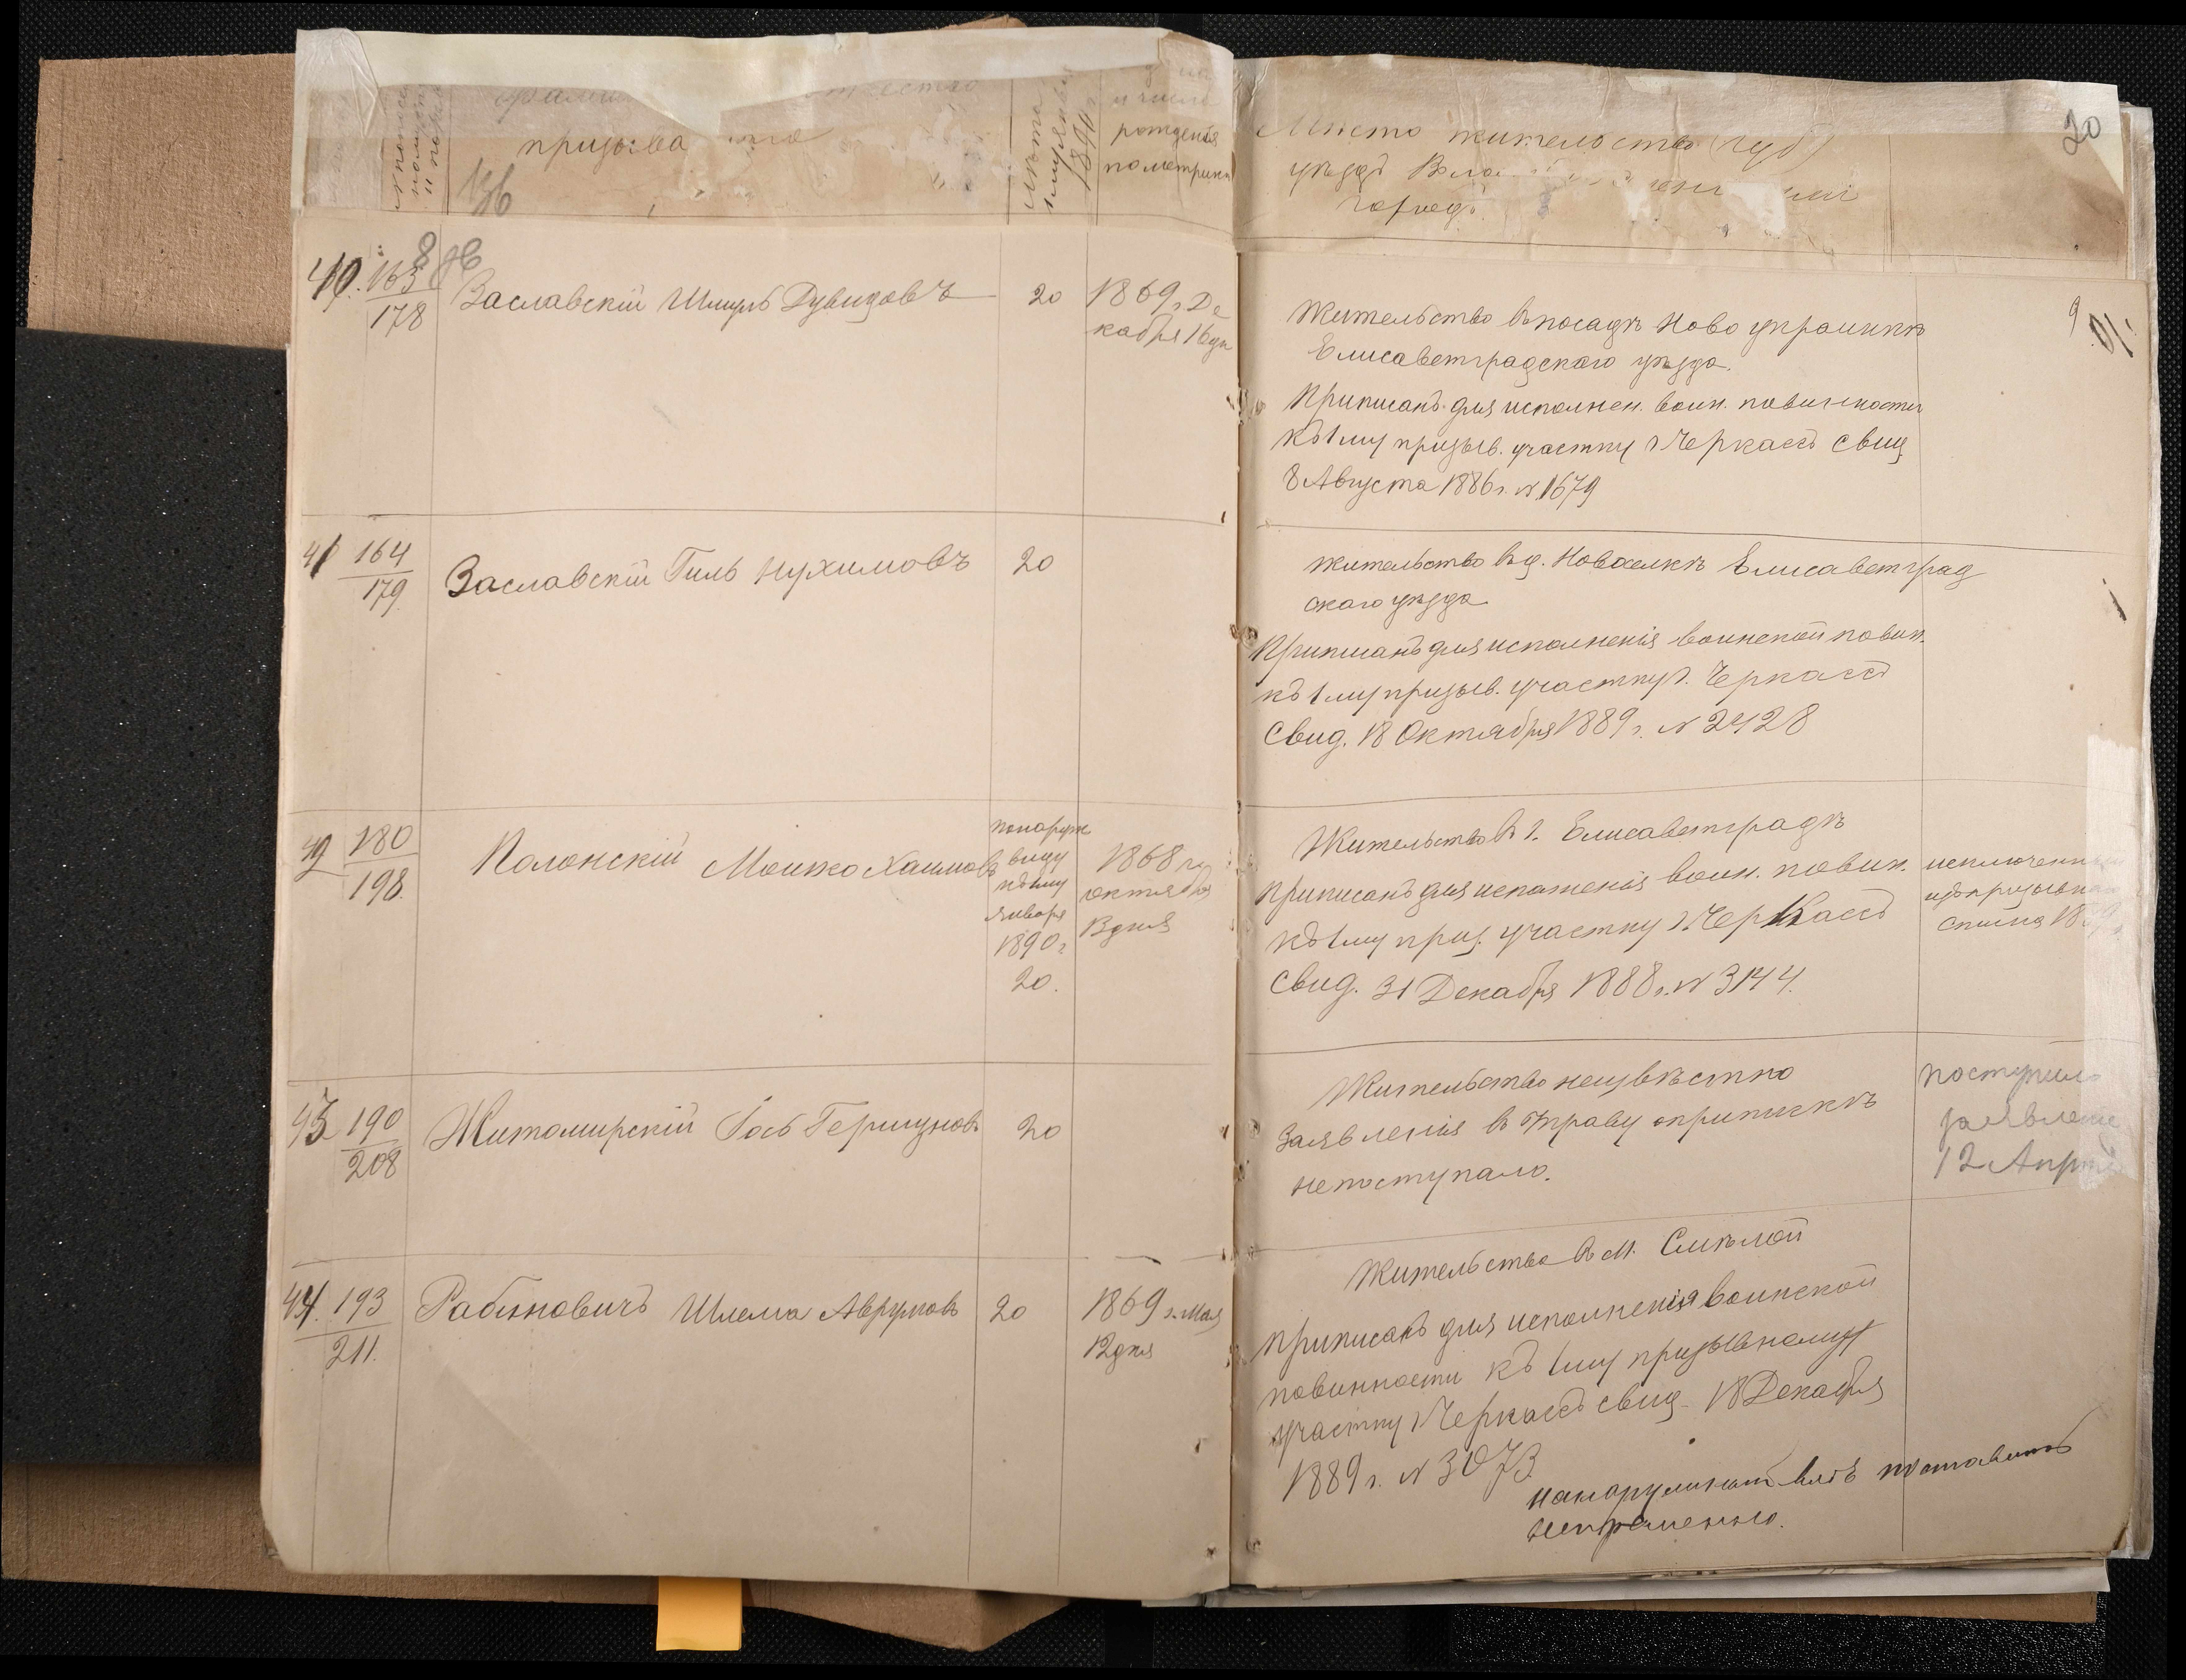 призыва
Лѣта
къ 1 му января
1890 г.
и число
рожденія
по метрике
Мѣсто жительство (губ)
уѣздъ
городъ
20
40. 163
178
Заславскій Шмуль Дувидовъ
20
1869 г. Де
кабря 16 дн
Жительство въ посадѣ Ново украинкѣ
Елисаветградскаго уѣзда.
Приписанъ для исполнен. воин. повинности
къ 1 му призыв. участку г. Черкассъ свид
8 Августа 1886 г. № 1679
41 164
179.
Заславскій Гиль Нухимовъ
20
жительство въ д. Новоселкѣ Елисаветград
скаго уѣзда
Приписанъ для исполненія воинской повин.
къ 1 му призыв. участку г. Черкассъ
Свид. 18 Октября 1889 г. № 2428
42 180
198.
Полонскій Мошко Хаимовъ
по наружн
виду
къ 1 му
января
1890 г
20.
1868 го
октября
13 дня
Жительство въ г. Елисаветградѣ
Приписанъ для исполненія воин. повин.
къ 1 му приз. участку г. Черкассъ
Свид. 31 Декабря 1888 г. № 3144.
исключен
изъ призывн
списка 18
43 190
208
Житомирскій Іось Гершуновъ
20
Жительство неизвѣстно
Заявленія въ Управу о припискѣ
не поступало.
поступило
заявлені
12 Апр
44. 193
211.
Рабиновичъ Шлема Аврумовъ
20
1869 г. Мая
12 дня
Жительство въ м. Смѣлой
Приписанъ для исполненія воинской
повинности къ 1 му призывному
участку г. Черкассъ свид. 18 Декабря
1889 г. № 3073